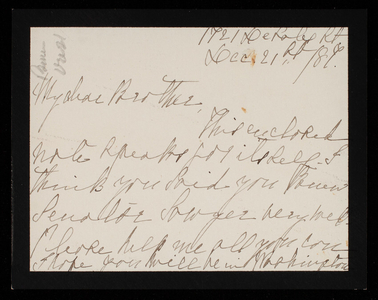 1721 DeSales St
Dec. 21st /87.
My dear Brother,
This enclosed
note speaks for itself. I
think you said you knew
Senator Sawyer very well
Please help me all you can
I hope you will be in Washington